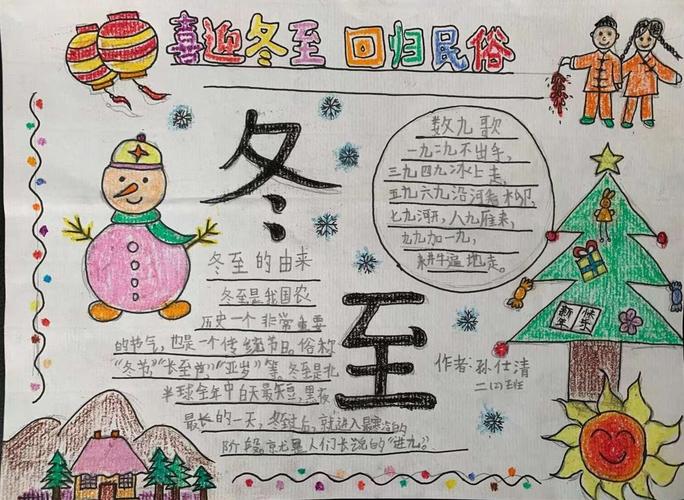 喜迎冬至 回归民俗
冬至
数九歌
一九二九不出手,
三九四九冰上走,
五九六九沿河看柳,
七九河开,八九雁来,
九九加一九,
耕牛遍地走。
冬至的由来
冬至是我国农
历史一个非常重要
的节气,也是一个传统节日。俗称
“冬节”“长至节”“亚岁”等,冬至是北
半球全年中白天最短,黑夜
最长的一天,冬至过后,就进入最寒冷的
阶段。京尤是人们长说的“进九”。
新年
快乐
作者:孙仕清
二(2)班